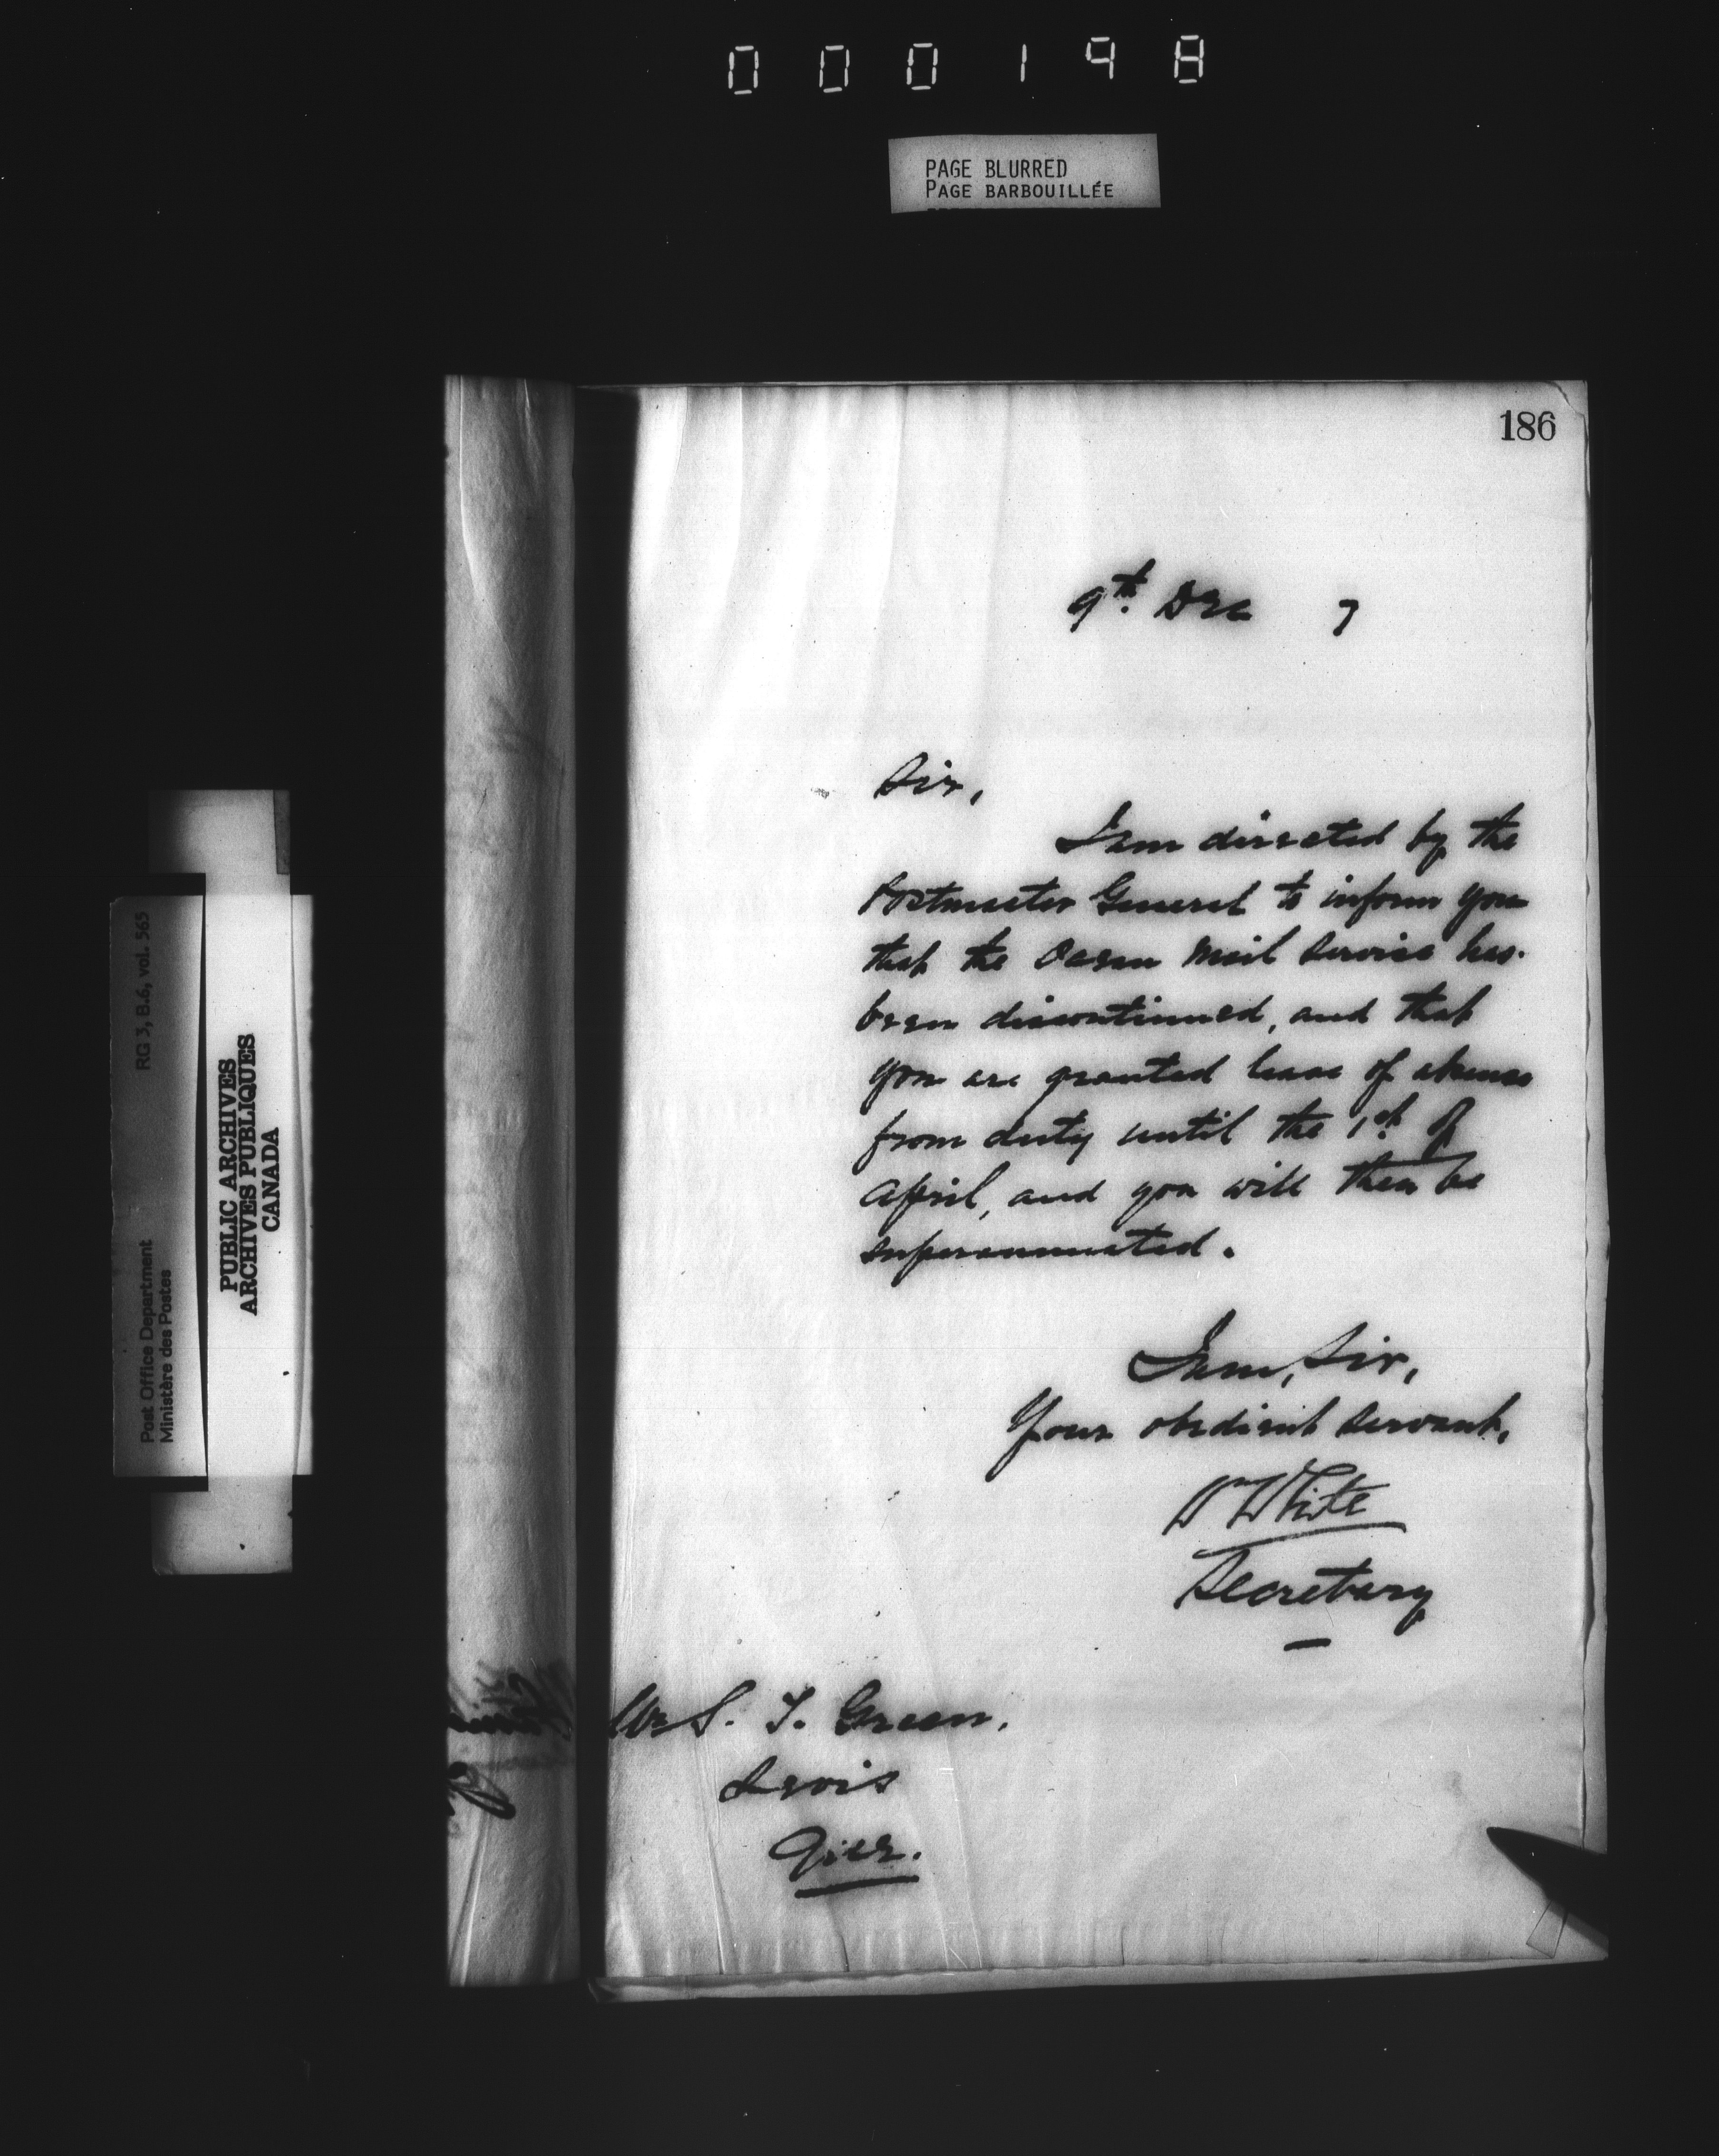 000198
PAGE BLURRED
PAGE BARBOUILLÉE
186
9th. Dec 7
Sir,
I am directed by the
Postmaster General to inform you
that the Ocean Mail Service has
been discontinued, and that
you are granted leave of absence
from duty until the 1st. of
April, and you will then be
superannuated.
I am, Sir,
Your obedient Servant,
W White
Secretary
Mr S. T. Green,
Levis
Quebec.
RG 3, B.6, vol. 565
Post Office Department
Ministère des Postes
PUBLIC ARCHIVES
ARCHIVES PUBLIQUES
CANADA